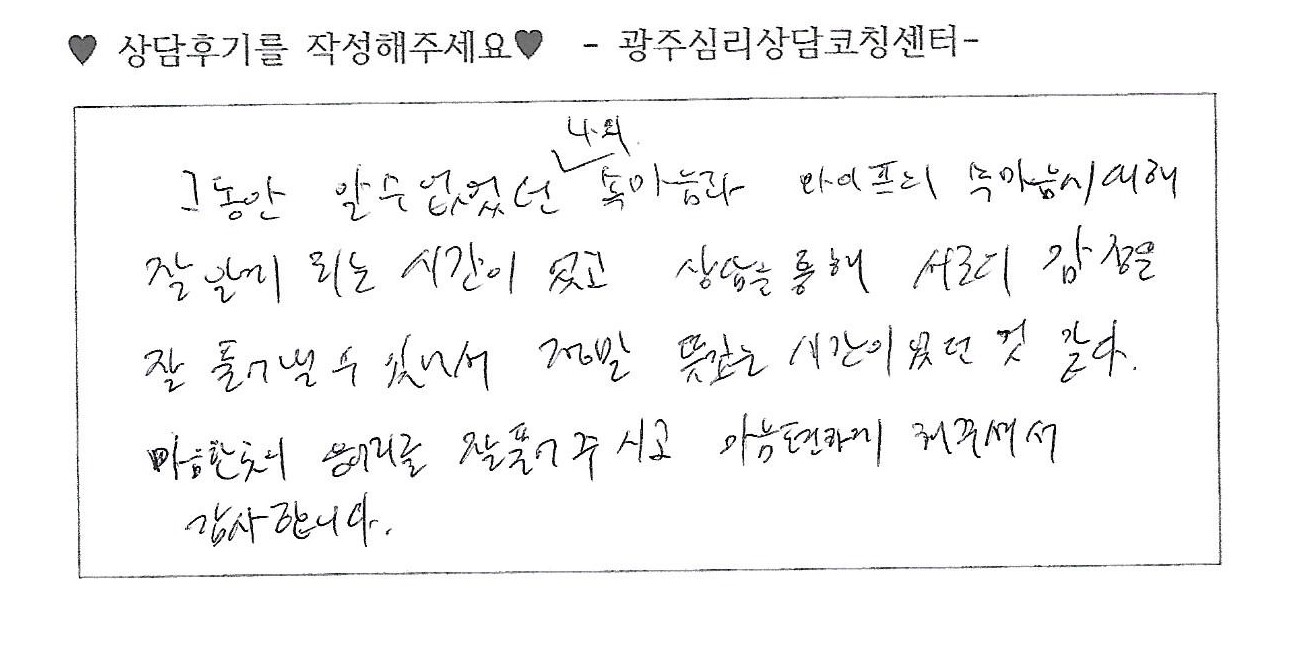 ♥ 상담후기를 작성해주세요♥ - 광주심리상담코칭센터-
나의
그동안 알수없었던 속마음과 와이프의 속마음에대해
잘 알게 되는 시간이 었고 상담을 통해 서로의 감정을
잘 풀어낼 수 있어서 정말 뜻깊은 시간이었던 것 같다.
마음한켠의 응어리를 잘풀어주시고 마음편하게 해주셔서
감사합니다.